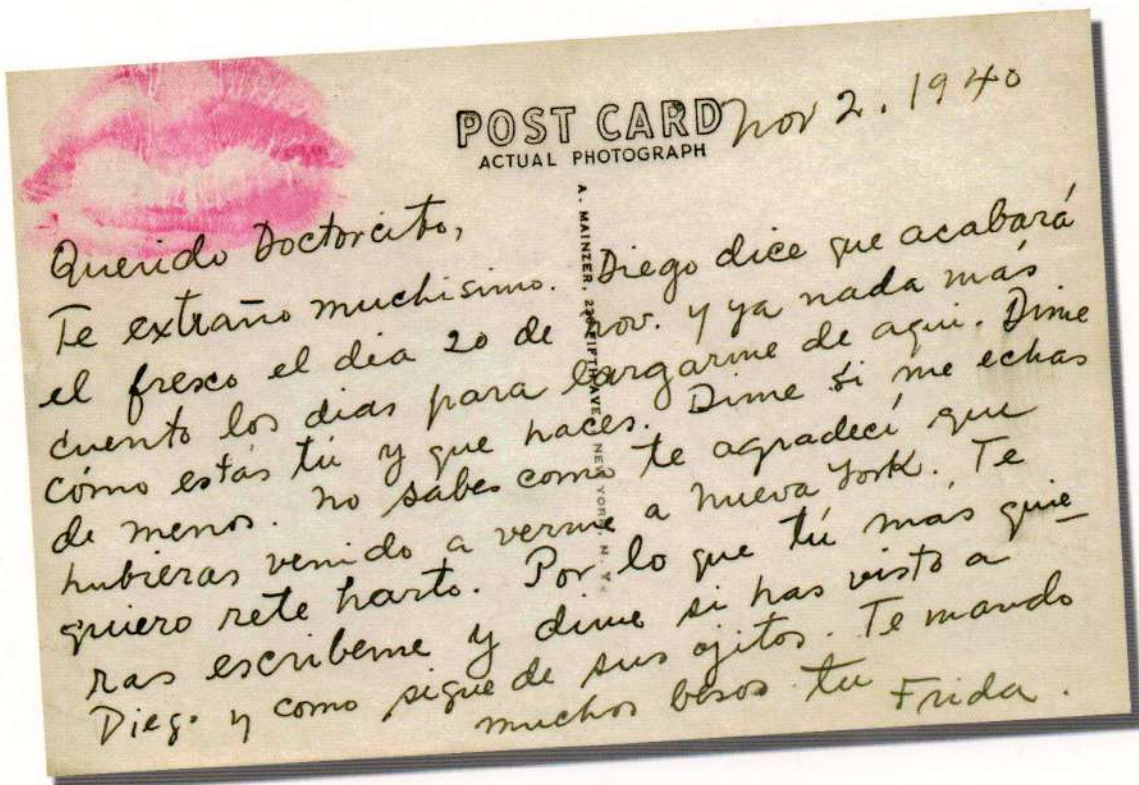 POST CARD
ACTUAL PHOTOGRAPH
Nov 2. 1940
A. MAINZER, FIFTH AVE. NEW YORK, N. Y.
Querido Doctorcito,
Te extraño muchisimo. Diego dice que acabará
el fresco el dia 20 de nov. y ya nada más
cuento los dias para largarme de aqui. Dime
cómo estás tú y que haces. Dime si me echas
de menos. no sabes como te agradecí que
hubieras venido a verme a Nueva York. Te
quiero rete harto. Por lo que tú más quie
ras escribeme y dime si has visto a
Diego y como sigue de sus ojitos. Te mando
muchos besos tu Frida.